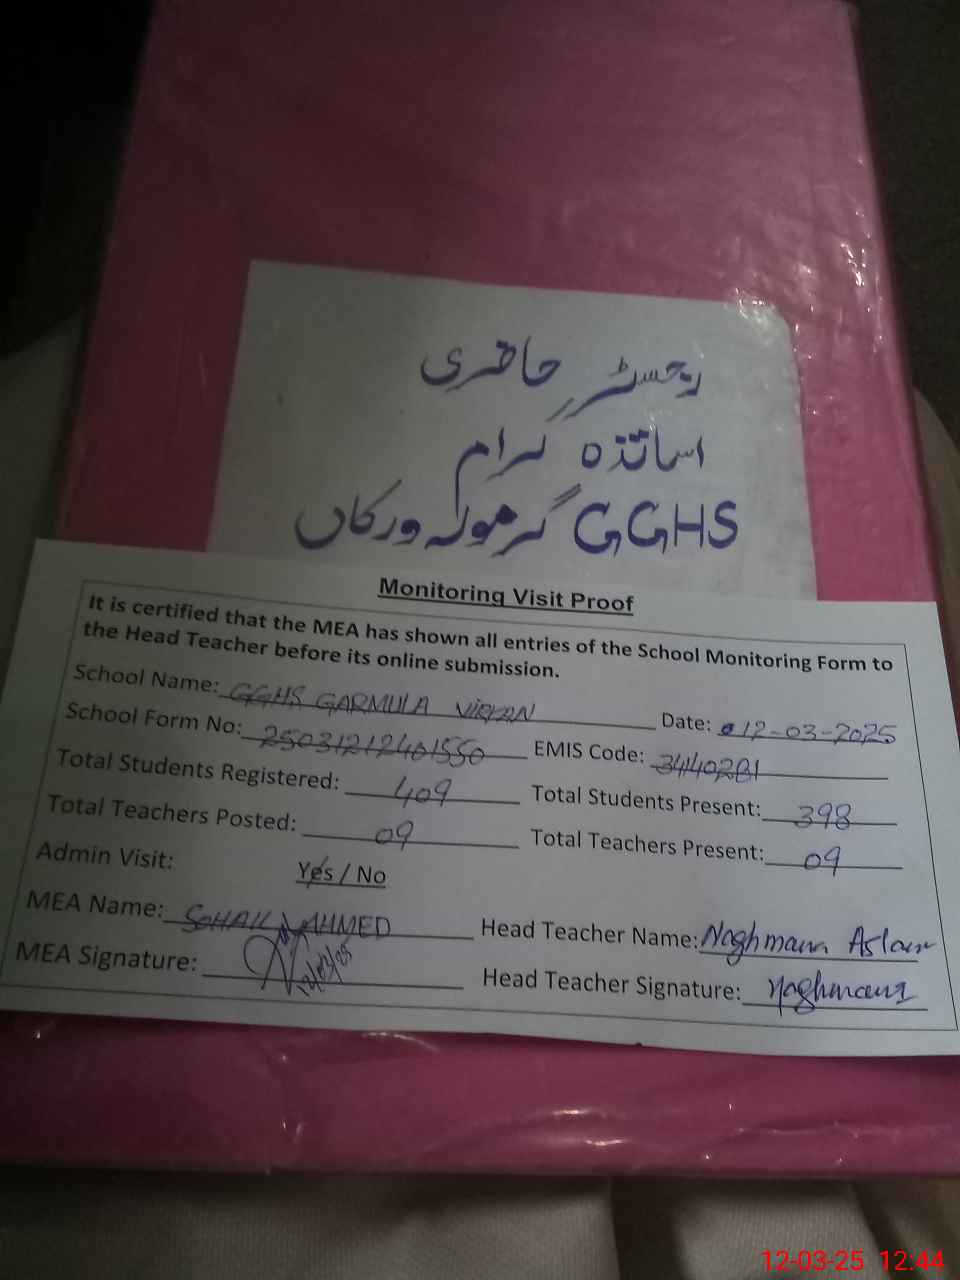 رجسٹر حاضری
اساتذہ کرام
GGHS گرمولہ ورکاں
Monitoring Visit Proof
It is certified that the MEA has shown all entries of the School Monitoring Form to
the Head Teacher before its online submission.
School Name: GGHS GARMULA VIRKAN Date: 12-03-2025
School Form No: 25031212401550 EMIS Code:
Total Students Registered: 409 Total Students Present: 398
Total Teachers Posted: 09 Total Teachers Present: 09
Admin Visit: Yes / No
MEA Name: SOHAIL AHMED Head Teacher Name: Naghmana Aslam
MEA Signature: Head Teacher Signature: Naghmana
12-03-25 12:44